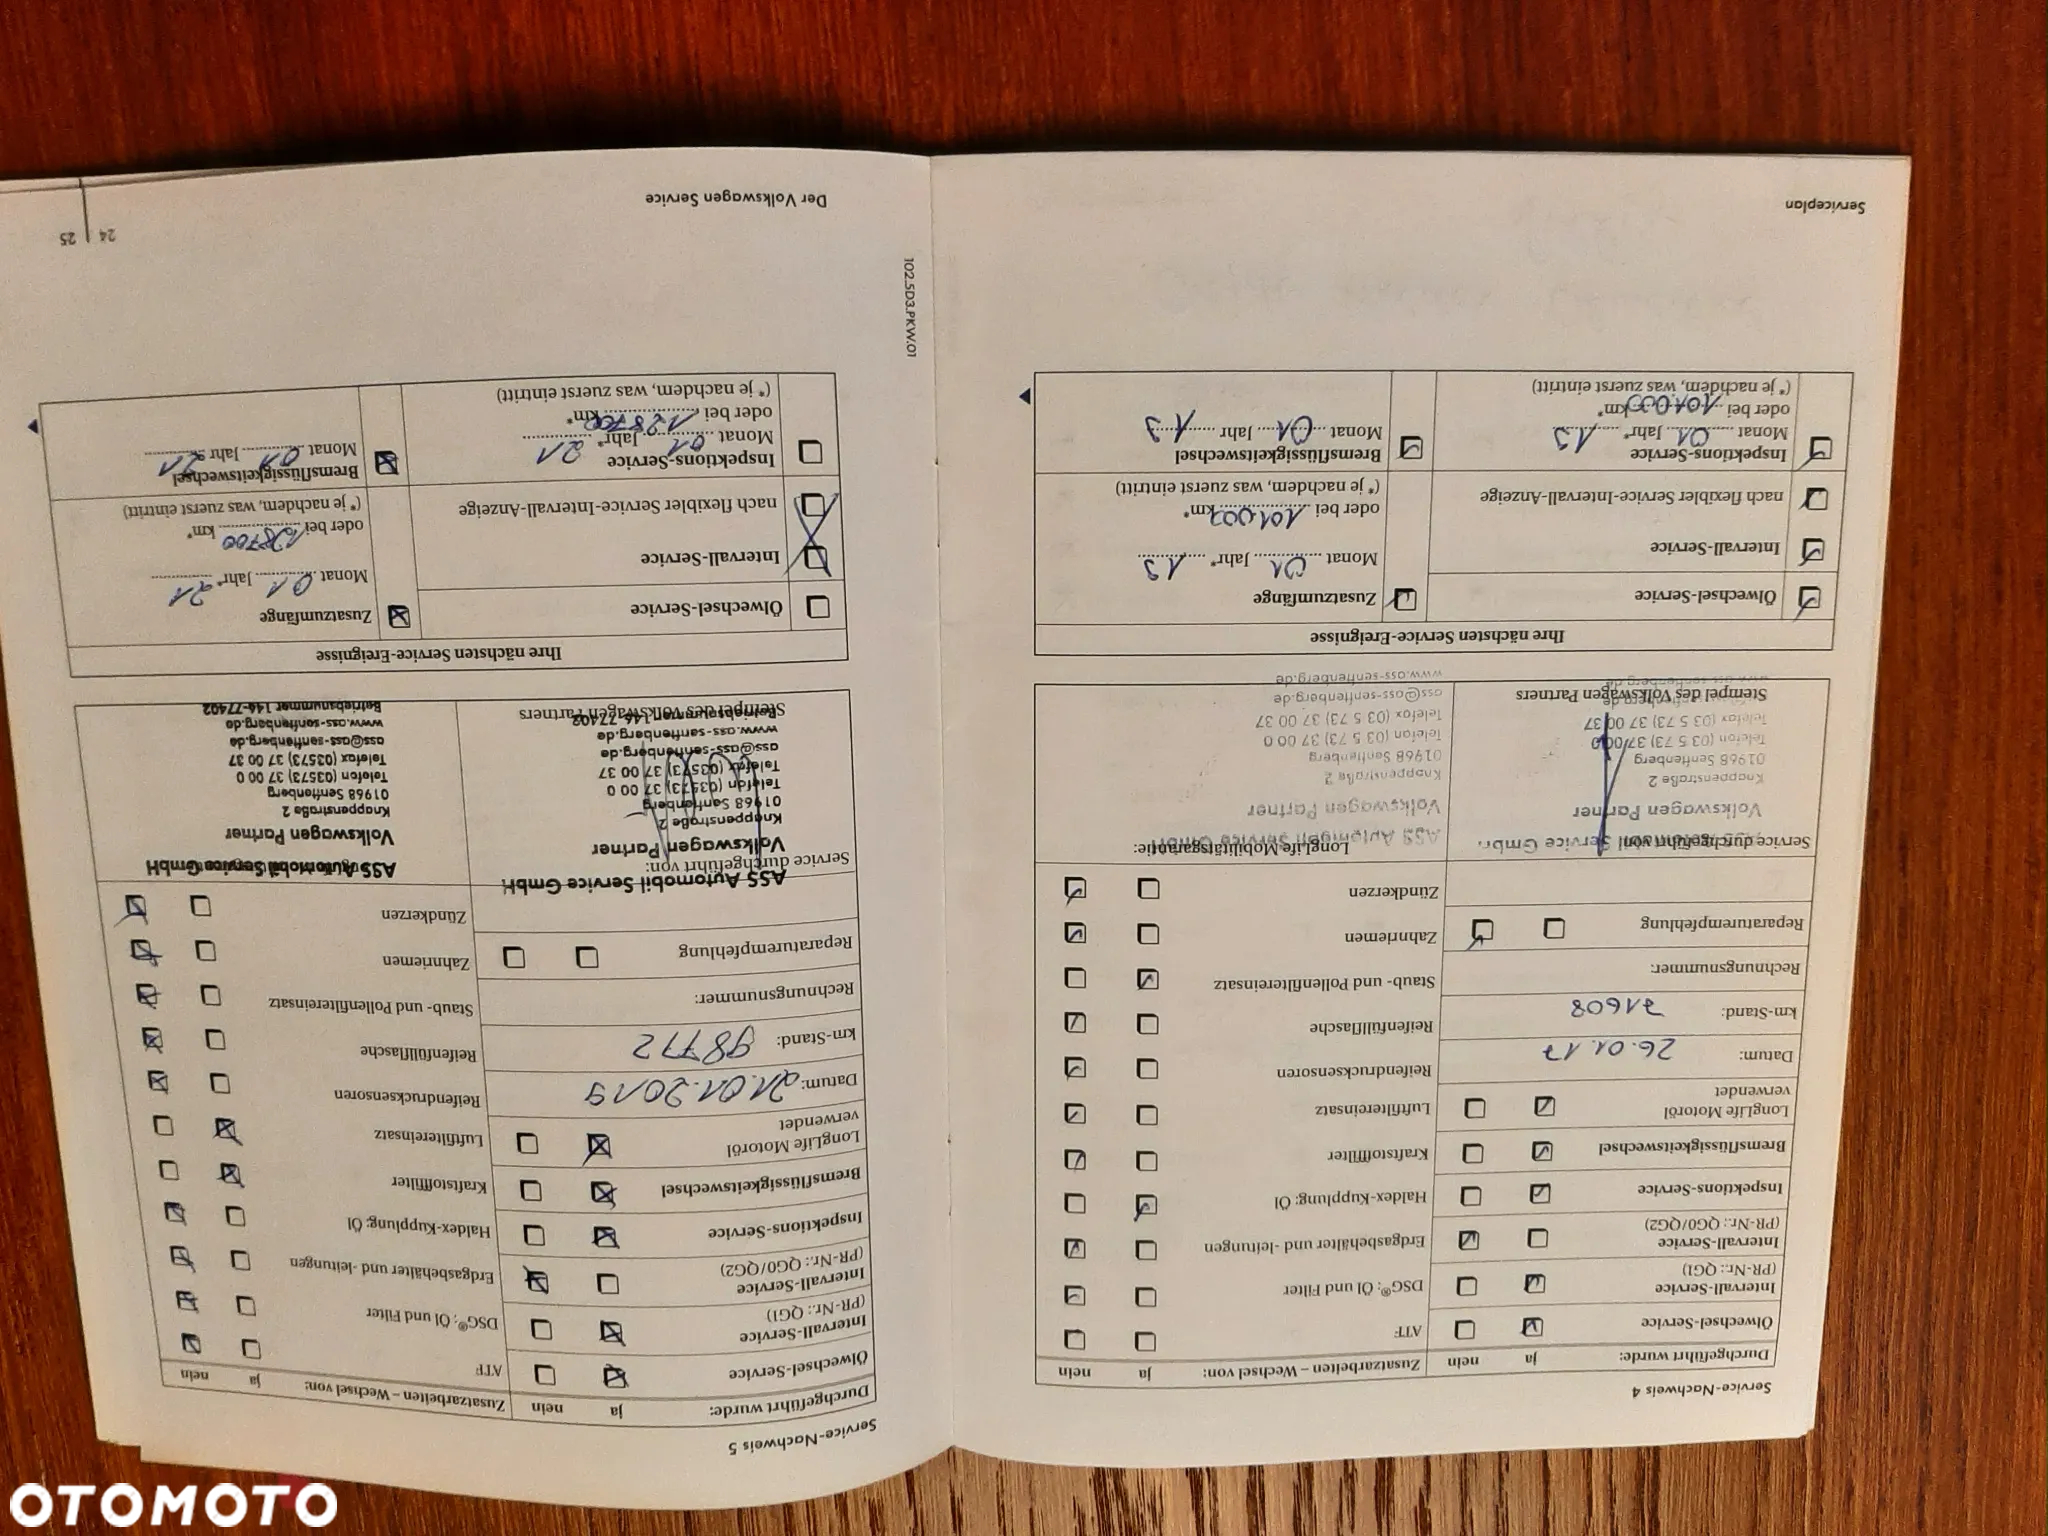 Service-Nachweis 4
Durchgeführt wurde: ja nein
Ölwechsel-Service
Intervall-Service
(PR-Nr.: QG1)
Intervall-Service
(PR-Nr.: QG0/QG2)
Inspektions-Service
Bremsflüssigkeitswechsel
LongLife Motoröl
verwendet
Datum: 26.01.17
km-Stand: 71608
Rechnungsnummer:
Reparaturempfehlung
Service durchgeführt von:
Volkswagen Partner
Knappenstraße 2
01968 Senftenberg
Telefon (03 5 73) 37 00 0
Telefax (03 5 73) 37 00 37
Stempel des Volkswagen Partners
Zusatzarbeiten – Wechsel von: ja nein
ATF
DSG®; Öl und Filter
Erdgasbehälter und -leitungen
Haldex-Kupplung; Öl
Kraftstofffilter
Luftfiltereinsatz
Reifendrucksensoren
Reifenfüllflasche
Staub- und Pollenfiltereinsatz
Zahnriemen
Zündkerzen
LongLife Mobilitätsgarantie:
ASS Automobil Service GmbH
Volkswagen Partner
Knappenstraße 2
01968 Senftenberg
Telefon (03 5 73) 37 00 0
Telefax (03 5 73) 37 00 37
ass@ass-senftenberg.de
www.ass-senftenberg.de
Ihre nächsten Service-Ereignisse
Ölwechsel-Service
Intervall-Service
nach flexibler Service-Intervall-Anzeige
Inspektions-Service
Monat 01 Jahr* 19
oder bei 101.000 km*
(*je nachdem, was zuerst eintritt)
Zusatzumfänge
Monat 01 Jahr* 19
oder bei 101.000 km*
(*je nachdem, was zuerst eintritt)
Bremsflüssigkeitswechsel
Monat 01 Jahr 19
Serviceplan
Service-Nachweis 5
Durchgeführt wurde: ja nein
Ölwechsel-Service
Intervall-Service
(PR-Nr.: QG1)
Intervall-Service
(PR-Nr.: QG0/QG2)
Inspektions-Service
Bremsflüssigkeitswechsel
LongLife Motoröl
verwendet
Datum: 21.01.2019
km-Stand: 98772
Rechnungsnummer:
Reparaturempfehlung
ASS Automobil Service GmbH
Service durchgeführt von:
Volkswagen Partner
Knappenstraße 2
01968 Senftenberg
Telefon (03573) 37 00 0
Telefax (03573) 37 00 37
ass@ass-senftenberg.de
www.ass-senftenberg.de
Betriebsnummer 146-77402
Stempel des Volkswagen Partners
Zusatzarbeiten – Wechsel von: ja nein
ATF
DSG®; Öl und Filter
Erdgasbehälter und -leitungen
Haldex-Kupplung; Öl
Kraftstofffilter
Luftfiltereinsatz
Reifendrucksensoren
Reifenfüllflasche
Staub- und Pollenfiltereinsatz
Zahnriemen
Zündkerzen
ASS Automobil Service GmbH
Volkswagen Partner
Knappenstraße 2
01968 Senftenberg
Telefon (03573) 37 00 0
Telefax (03573) 37 00 37
ass@ass-senftenberg.de
www.ass-senftenberg.de
Betriebsnummer 146-77402
Ihre nächsten Service-Ereignisse
Ölwechsel-Service
Intervall-Service
nach flexibler Service-Intervall-Anzeige
Inspektions-Service
Monat 01 Jahr* 21
oder bei 128700 km*
(*je nachdem, was zuerst eintritt)
Zusatzumfänge
Monat 01 Jahr* 21
oder bei 128700 km*
(*je nachdem, was zuerst eintritt)
Bremsflüssigkeitswechsel
Monat 01 Jahr 21
102.5D3.PKW.01
Der Volkswagen Service
24 | 25
OTOMOTO